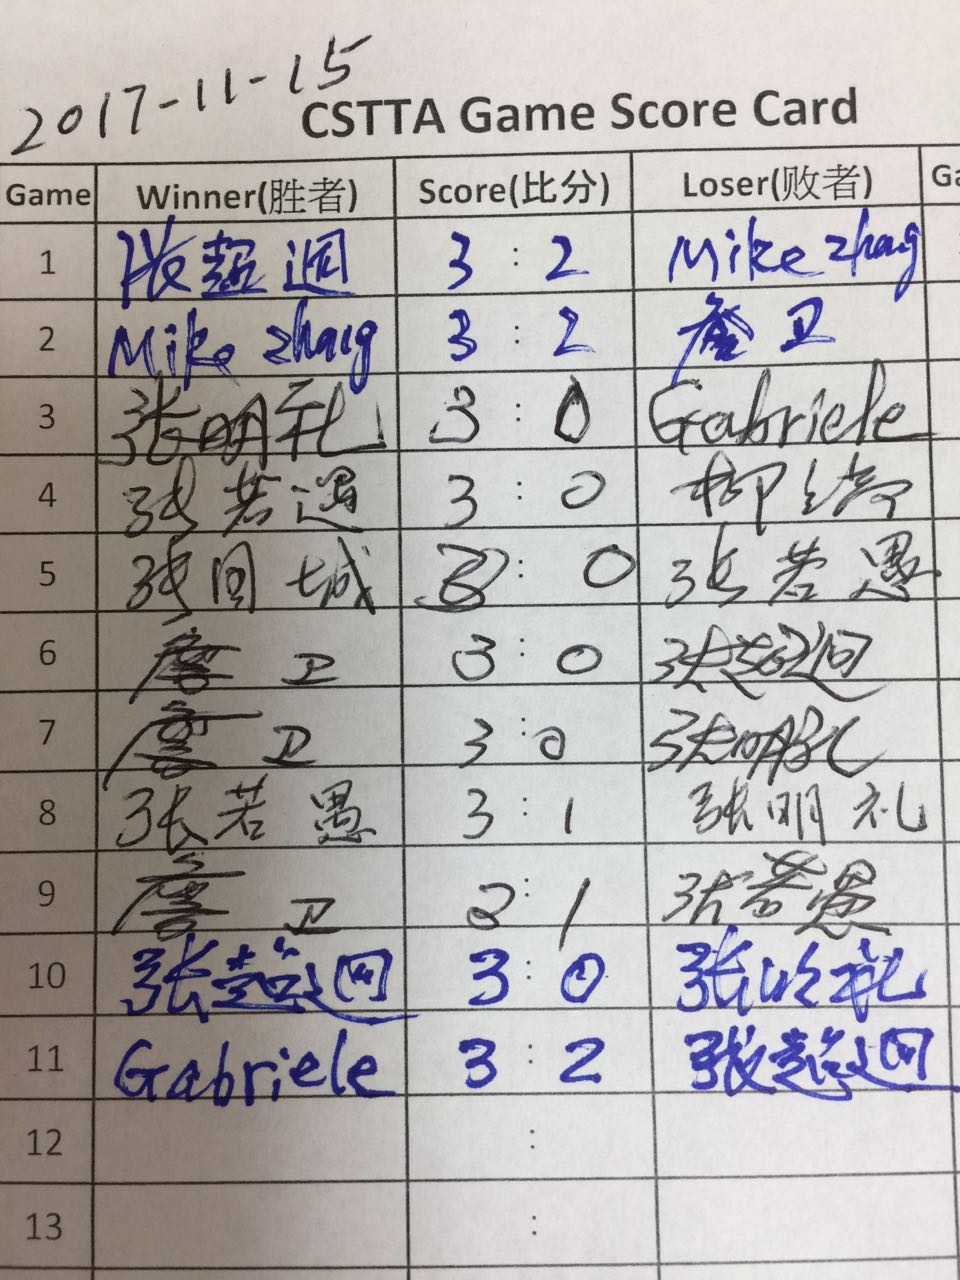 2017-11-15
CSTTA Game Score Card
Game Winner(胜者) Score(比分) Loser(败者) Ga
1 张超迥 3 : 2 Mike zhang
2 Mike zhang 3 : 2 詹卫
3 张明礼 3 : 0 Gabriele
4 张若愚 3 : 0 柳
5 张国城 3 : 0 张若愚
6 詹卫 3 : 0 张超迥
7 詹卫 3 : 0 张明礼
8 张若愚 3 : 1 张明礼
9 詹卫 2 : 1 张若愚
10 张超迥 3 : 0 张明礼
11 Gabriele 3 : 2 张超迥
12 :
13 :